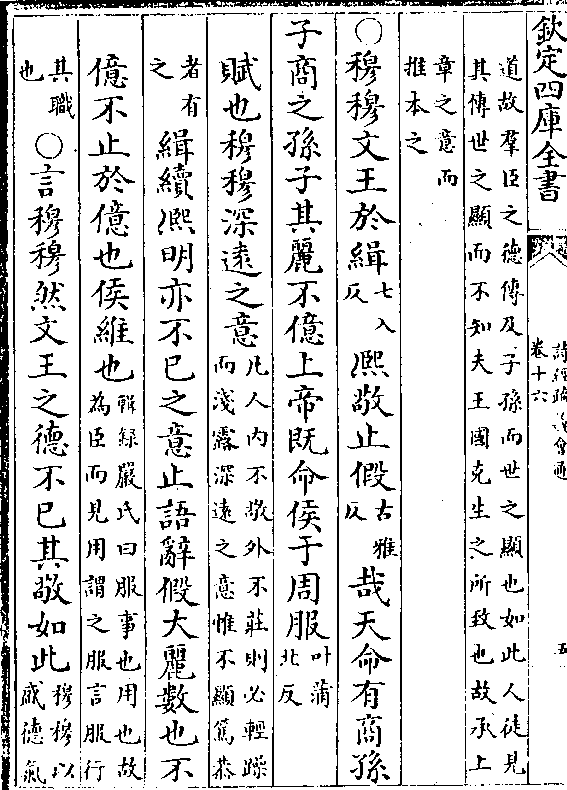 欽定四庫全書
詩經疏義會通
卷十六
五
道故羣臣之德傳及子孫而世之顯也如此人徒見
其傳世之顯而不知夫王國克生之所致也故承上
章之意而
推本之
○穆穆文王於緝七入反熙敬止假古雅反哉天命有商孫
子商之孫子其麗不億上帝既命侯于周服叶蒲北反
賦也穆穆深遠之意凡人内不敬外不莊則必輕躁而淺露深遠之意惟不顯篤恭
者有之緝續熙明亦不已之意止語辭假大麗數也不
億不止於億也侯維也輯録嚴氏曰服事也用也故為臣而見用謂之服言服行
其職也○言穆穆然文王之德不已其敬如此穆穆以盛德氣